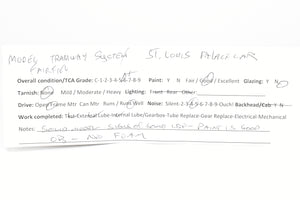 MODEL TRAMWAY SYSTEM ST. LOUIS PALACE CAR
Overall condition/TCA Grade: C-1-2-3-4-5-6-7-8-9 Paint: Y N Fair / Good / Excellent Glazing: Y N
Tarnish: None Mild / Moderate / Heavy Lighting: Front Rear Other
Drive: Open Frame Mtr Can Mtr Runs / Runs Well Noise: Silent-2-3-4-5-6-7-8-9 Ouch! Backhead/Cab Y N
Work completed: Test-External Lube-Internal Lube/Gearbox-Tube Replace-Gear Replace-Electrical-Mechanical
Notes: GOOD PAINT IS GOOD
NO FOAM